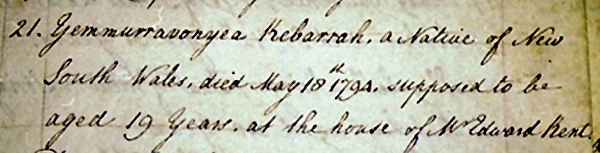 21. Yemmurravonyea Kebarrah, a Native of New
South Wales, died May 18th 1794. supposed to be
aged 19 Years. at the house of Mr Edward Kent.